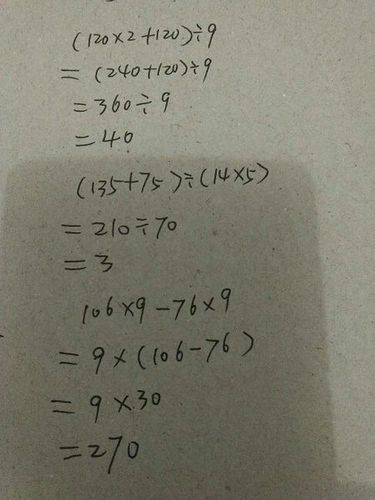 (120×2+120)÷9
= (240+120)÷9
= 360÷9
= 40
(135+75)÷(14×5)
= 210÷70
= 3
106×9-76×9
= 9×(106-76)
= 9×30
= 270